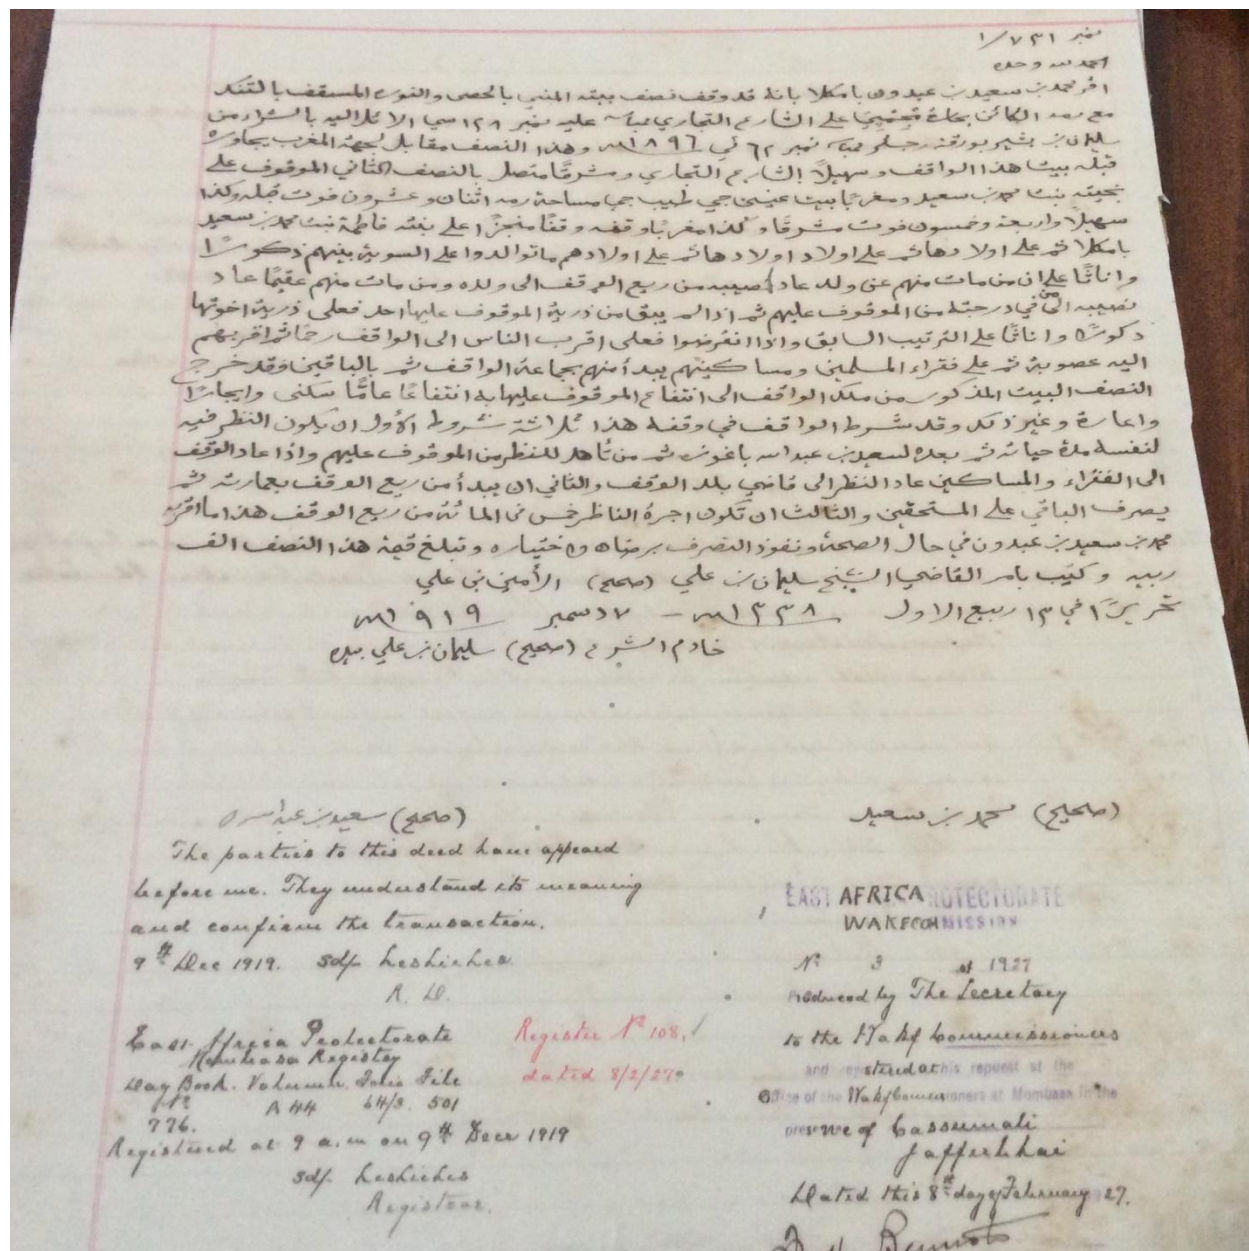 نمبر ٧٣١ / ١
الحمد لله وحده
اقر محمد بن سعيد بن عبدون بامكلا بانه قد وقف نصف بيته المبني بالحصى والنوره المسقف بالتنك
مع رمه الكائن بحافة على الشارع التجاري عليه نمبر ١٢٨ سي الائل اليه بالشراء من
سليمان بن بشير بورقة نمبر ٦٢ في ١٨٩٦ وهذا النصف مقابل لجهة المغرب يجاوره
قبلة بيت هذا الواقف وسهيلاً الشارع التجاري ومشرقًا متصل بالنصف الثاني الموقوف على
بنت محمد بن سعيد ومغربًا بيت جي طيب جي مساحة رمه اثنان وعشرون فوت قبله وكذا
سهيلاً واربعة وخمسون فوت مشرقا وكذا مغربًا وقفه وقفًا منجزًا على بنته فاطمة بنت محمد بن سعيد
بامكلا ثم على اولادها ثم على اولاد اولادها ثم على اولادهم ما توالدوا على السوية بينهم ذكورًا
واناثًا على ان من مات منهم عن ولد عاد نصيبه من ريع الوقف الى ولده ومن مات منهم عقيمًا عاد
نصيبه الى من في درجته من الموقوف عليهم ثم اذا لم يبق من ذرية الموقوف عليها احد فعلى ذرية اخوتها
ذكورًا واناثًا على الترتيب السابق واذا انقرضوا فعلى اقرب الناس الى الواقف رحمًا ثم اقربهم
اليه عصوبة ثم على فقراء المسلمين ومساكينهم يبدأ منهم بجماعة الواقف ثم بالباقين وقد خرج
النصف البيت المذكور من ملك الواقف الى انتفاع الموقوف عليها به انتفاعًا عامًا سكنى وايجارًا
واعارة وغير ذلك وقد شرط الواقف في وقفه هذا ثلاثة شروط الأول ان يكون النظر فيه
لنفسه مدة حياته ثم بعده لسعيد بن عبد الله باغوزه ثم من تأهل للنظر من الموقوف عليهم واذا عاد الوقف
الى الفقراء والمساكين عاد النظر الى قاضي بلد الوقف والثاني ان يبدأ من ريع الوقف بعمارته ثم
يصرف الباقي على المستحقين والثالث ان تكون اجرة الناظر خمس في المائة من ريع الوقف هذا ما اقر به
محمد بن سعيد بن عبدون في حال الصحة ونفوذ التصرف برضاه واختياره وتبلغ قيمة هذا النصف الف
ربيه وكتب بامر القاضي الشيخ سليمان بن علي (صحيح) الأمين بن علي
تحريرًا في ١٣ ربيع الاول ١٣٣٨ - ٧ دسمبر ١٩١٩
خادم الشرع (صحيح) سليمان بن علي بيده
(صحيح) محمد بن سعيد
(صحيح) سعيد بن عبد الله
The parties to this deed have appeard
before me. They understand its meaning
and confirm the transaction.
9th Dec 1919. Sd/-
R. D.
East Africa Protectorate
Mombasa Registry
Day Book. Volume. Folio File
No
A 44 64/3. 501
776.
Registered at 9 a.m on 9th Decr 1919
Sd/-
Registrar.
Register No 108,
dated 8/2/27
EAST AFRICA PROTECTORATE
WAKF COMMISSION
No 3 of 1927
Produced by The Secretary
to the Wakf Commissioners
and registered at his request at the
Office of the Wakf Commissioners at Mombasa in the
presence of Cassumali
Jafferbhai
Dated this 8th day of February 1927.